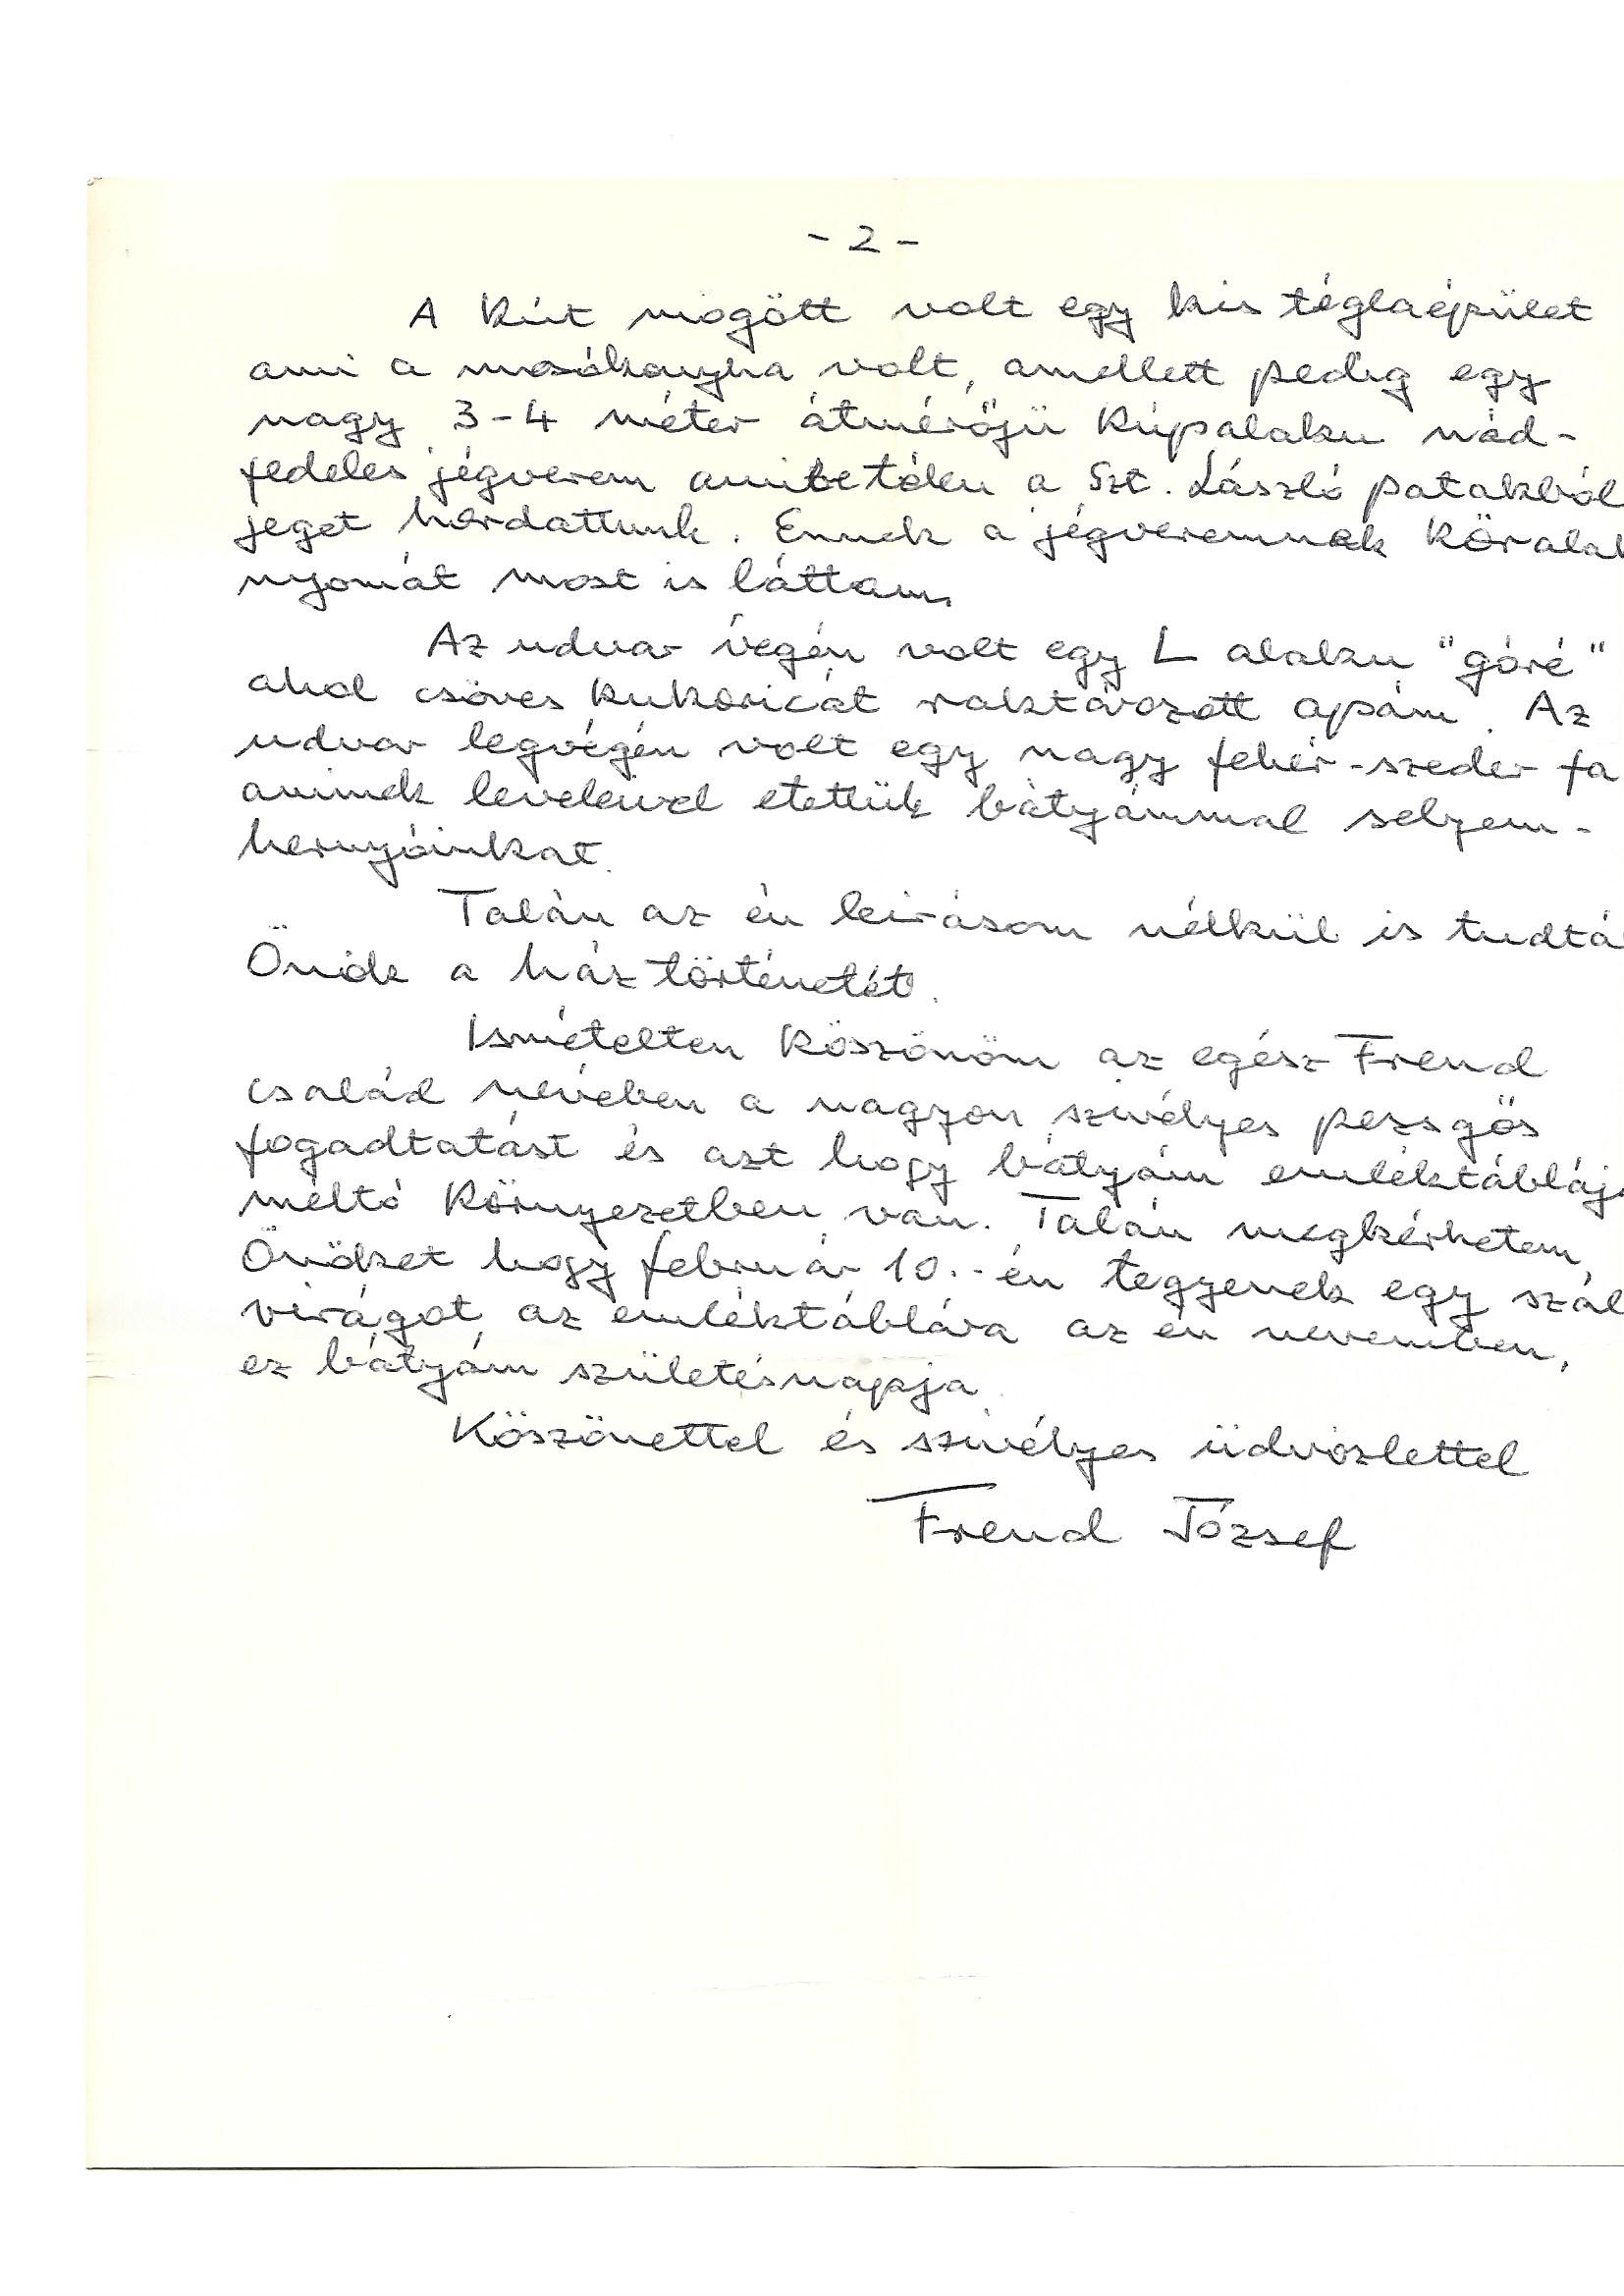 - 2 -
A Kút mögött volt egy kis téglaépület
ami a mosókonyha volt, amellett pedig egy
nagy 3-4 méter átmérőjü Kúpalaku nád-
fedeles jégverem amibe télen a Szt. László patakból
jeget hordattunk. Ennek a jégveremnek Köralak
nyomát most is láttam.
Az udvar végén volt egy L alaku "góré"
ahol csöves Kukoricát raktározott apám. Az
udvar legvégén volt egy nagy fehér-szeder fa
aminek leveleivel etettük bátyámmal selyem-
hernyóinkat.
Talán az én leirásom nélkül is tudtá
Önök a ház történetét.
Ismételten Köszönöm az egész Frend
család nevében a nagyon szivélyes pezsgős
fogadtatást és azt hogy bátyám emléktábláj
méltó Környezetben van. Talán megkérhetem
Önöket hogy február 10.-én tegyenek egy szál
virágot az emléktáblára az én nevemben,
ez bátyám születésnapja.
Köszönettel és szivélyes üdvözlettel
Frend József